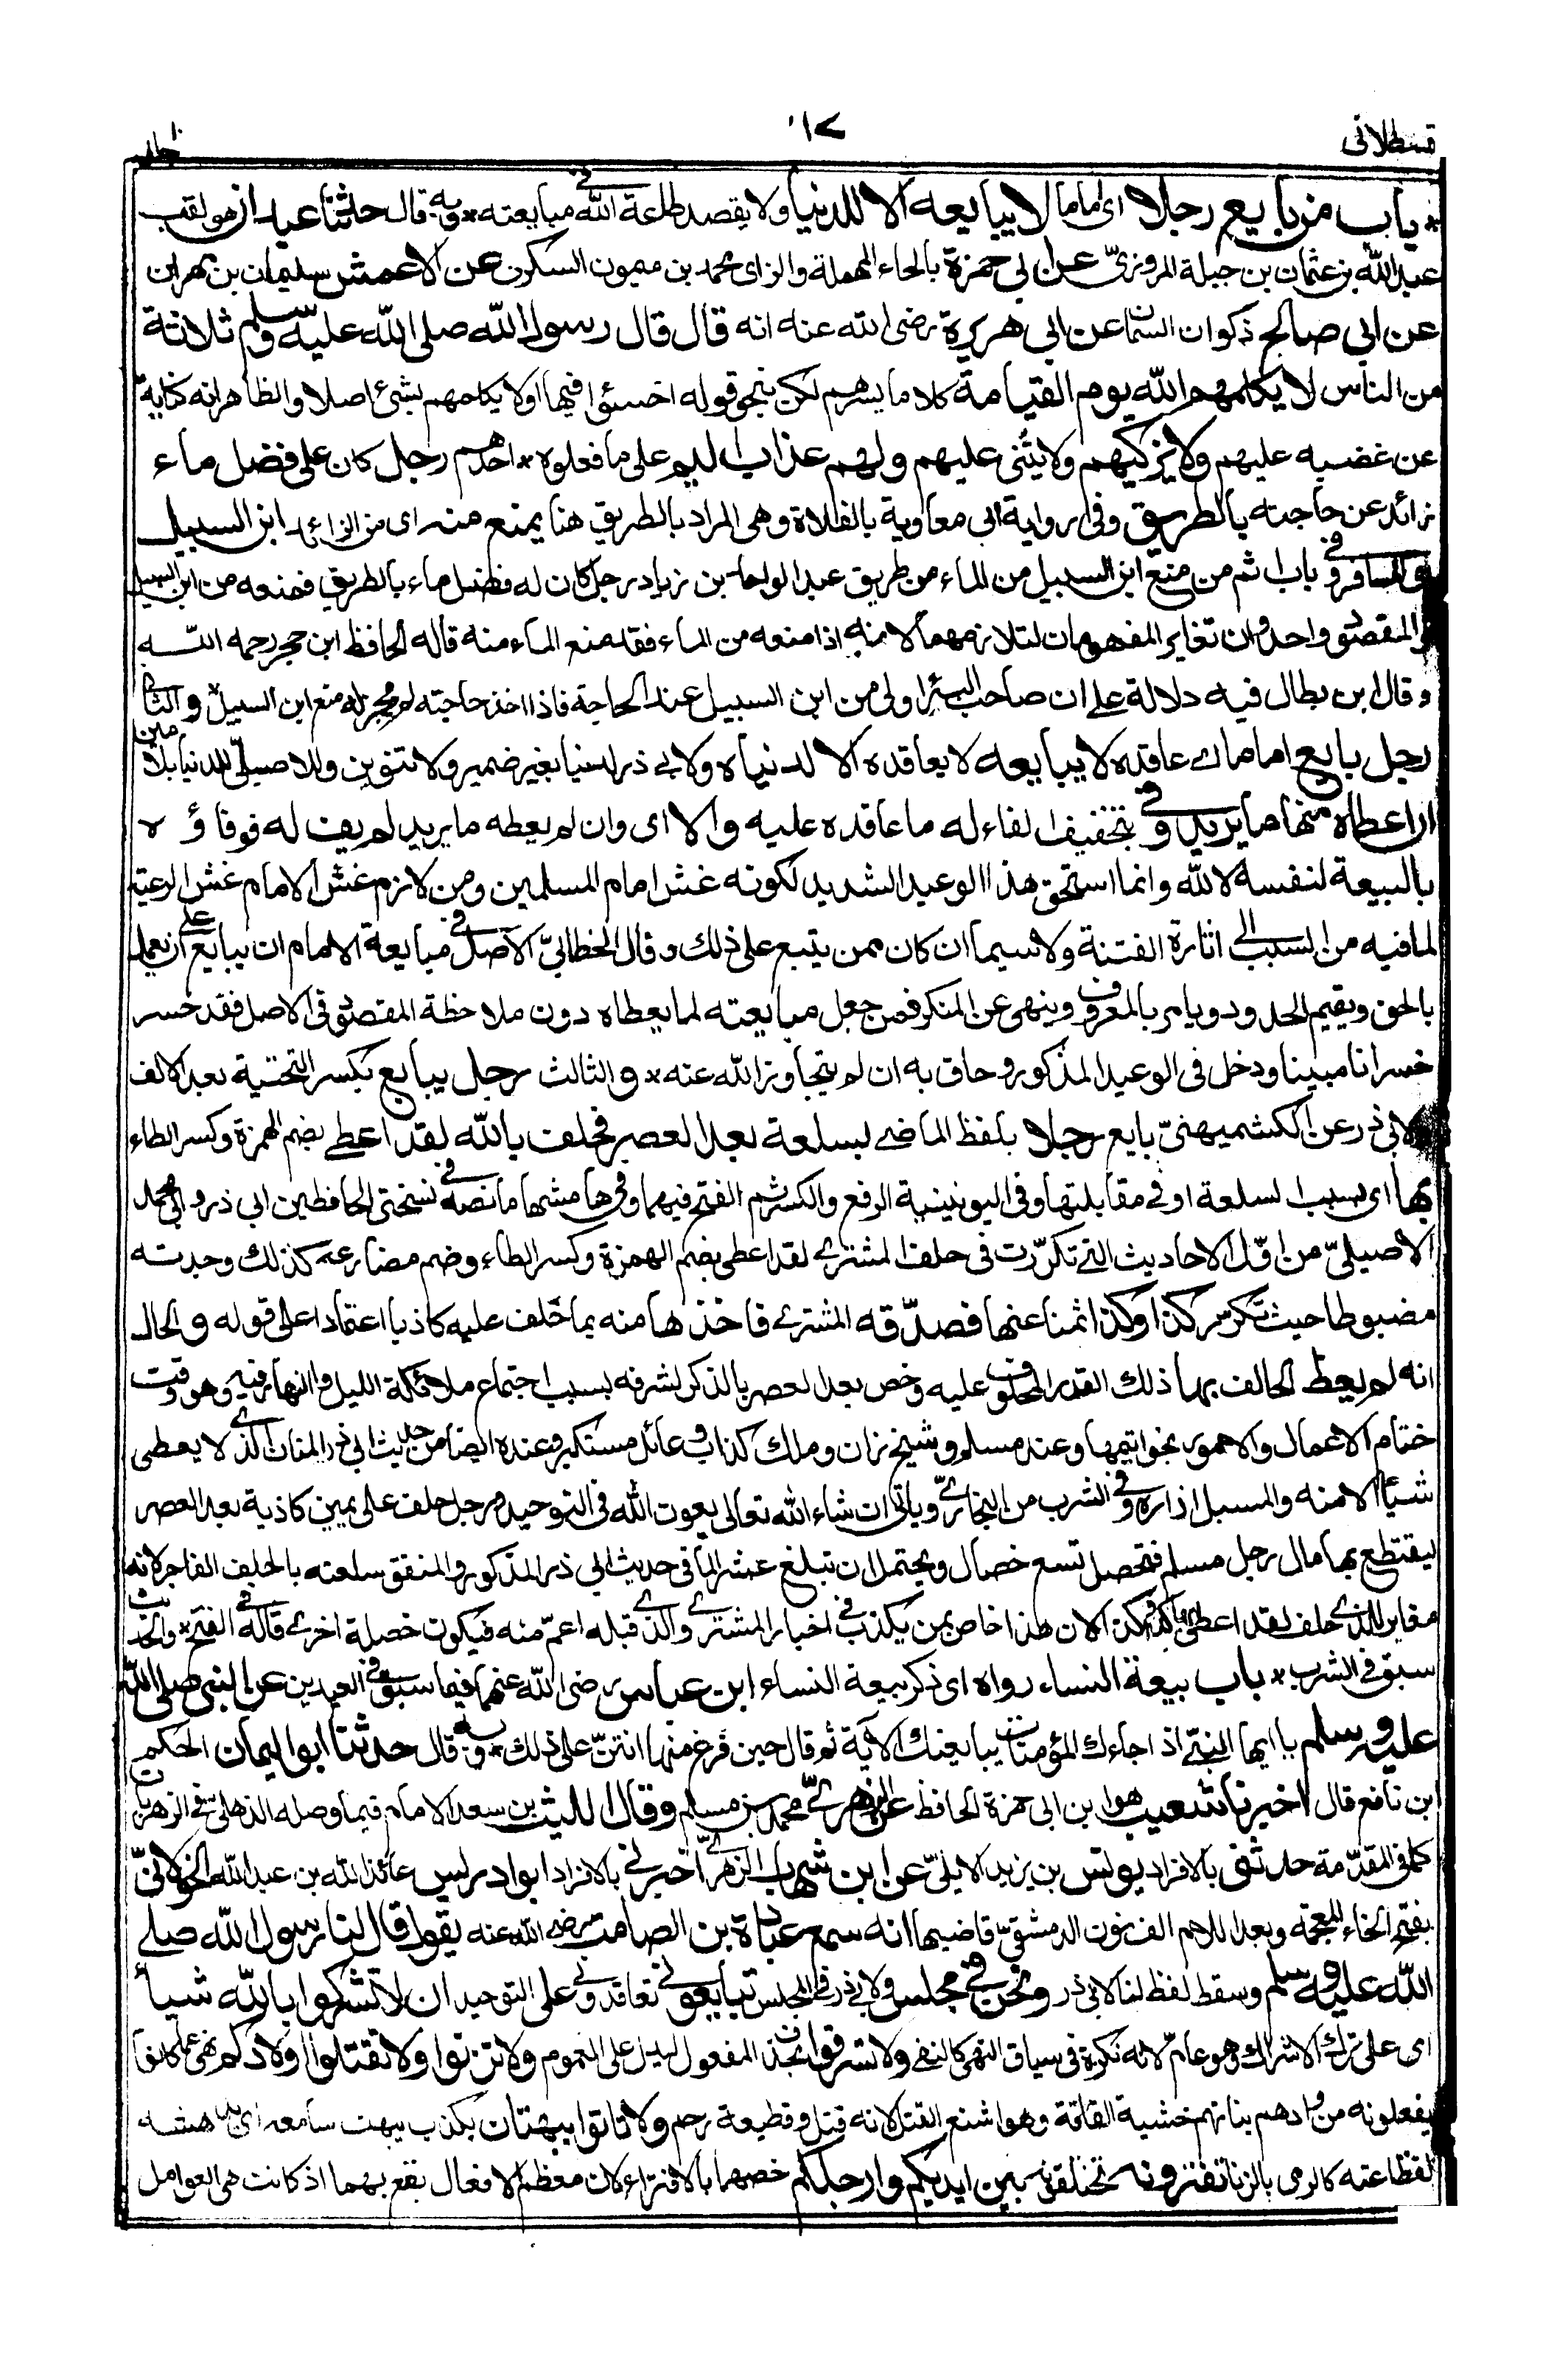 قسطلاني
جلد ١٠
* باب من بايع رجلا اى اماما لا يبايعه الا للدنيا ولا يقصد طاعة الله في مبايعته * وبه قال حدثنا عبدان هو لقب
عبد الله بن عثمان بن جبلة المروزيّ عن ابي حمزة بالحاء المهملة والزاى محمد بن ميمون السكرى عن الاعمش سليمان بن مهران
عن ابي صالح ذكوان السمان عن ابي هريرة رضى الله عنه انه قال قال رسول الله صلى الله عليه وسلم ثلاثة
من الناس لا يكلمهم الله يوم القيامة كلاما يسرهم لكن بنحو قوله اخسئوا فيها او لا يكلمهم بشئ اصلا والظاهر انه كناية
عن غضبه عليهم ولا يزكيهم ولا يثنى عليهم ولهم عذاب اليم على ما فعلوه * احدهم رجل كان على فضل ماء
زائد عن حاجته بالطريق وفى رواية ابى معاوية بالفلاة وهى المراد بالطريق هنا يمنع منه اى من الزائد ابن السبيل
اى المسافر وفي باب اثم من منع ابن السبيل من الماء من طريق عبد الواحد بن زياد رجل كان له فضل ماء بالطريق فمنعه من ابن السبيل
والمقصود واحد وان تغاير المفهومان لتلازمهما لانه اذا منعه من الماء فقد منع الماء منه قاله الحافظ ابن حجر رحمه الله
وقال ابن بطال فيه دلالة على ان صاحب البئر اولى من ابن السبيل عند الحاجة فاذا اخذ حاجته لم يجز له منع ابن السبيل * والثانى
رجل بايع اماما اى عاقده لا يبايعه لا يعاقده الا لدنياه ولابي ذر لدنيا بغير ضمير ولا تنوين وللاصيليّ للدنيا بلامين
ان اعطاه منها ما يريد وفى بتخفيف الفاء له ما عاقده عليه والا اى وان لم يعطه ما يريد لم يف له فوفاؤه
بالبيعة لنفسه لا لله وانما استحق هذا الوعيد الشديد لكونه غش امام المسلمين ومن لازم غش الامام غش الرعية
لما فيه من السبب الى اثارة الفتنة ولاسيما ان كان ممن يتبع على ذلك وقال الخطابيّ الاصل في مبايعة الامام ان يبايع على ان يعمل
بالحق ويقيم الحدود ويامر بالمعروف وينهى عن المنكر فمن جعل مبايعته لما يعطاه دون ملاحظة المقصود فى الاصل فقد خسر
خسرانا مبينا ودخل فى الوعيد المذكور وحاق به ان لم يتجاوز الله عنه * والثالث رجل يبايع بكسر التحتية بعد الالف
ولابى ذر عن الكشميهنىّ بايع رجلا بلفظ الماضى بسلعة بعد العصر فحلف بالله لقد اعطى بضم الهمزة وكسر الطاء
بها اى بسبب السلعة او فى مقابلتها وفى اليونينية الرفع والكسر ثم الفتح فيهما وفى هامشها ما نصه في نسختى الحافظين ابى ذر وابى محمد
الاصيليّ من اوّل الاحاديث التى تكرّرت فى حلف المشترى لقد اعطى بضم الهمزة وكسر الطاء وضم مضارعه كذلك وجدته
مضبوطا حيث تكرر كذا وكذا ثمنا عنها فصدّقه المشترى فاخذها منه بما حلف عليه كاذبا اعتمادا على قوله والحال
انه لم يعط الحالف بها ذلك القدر المحلوف عليه وخص بعد العصر بالذكر لشرفه بسبب اجتماع ملائكة الليل والنهار فيه وهو وقت
ختام الاعمال والامور بخواتيمها وعند مسلم وشيخ زان وملك كذاب وعائل مستكبر وعنده ايضا من حديث ابى ذر المنان الذى لا يعطى
شيأ الا منه والمسبل ازاره وفى الشرب من البخارىّ وياتى ان شاء الله تعالى بعون الله فى التوحيد ورجل حلف على يمين كاذبة بعد العصر
ليقتطع بها مال رجل مسلم فتحصل تسع خصال ويحتمل ان تبلغ عشرا لما فى حديث ابى ذر المذكور والمنفق سلعته بالحلف الفاجر لانه
مغاير للذى حلف لقد اعطى بها كذا وكذا لان هذا خاص بمن يكذب في اخبار المشترى والذى قبله اعمّ منه فيكون خصلة اخرى قاله في الفتح * والحديث
سبق فى الشرب * باب بيعة النساء رواه اى ذكر بيعة النساء ابن عباس رضى الله عنهما فيما سبق في العيدين عن النبي صلى الله
عليه وسلم يا ايها النبى اذا جاءك المؤمنات يبايعنك الآية ثم قال حين فرغ منها انتنّ على ذلك * وبه قال حدثنا ابو اليمان الحكم
ابن نافع قال اخبرنا شعيب هو ابن ابى حمزة الحافظ عن الزهرىّ محمد بن مسلم وقال الليث بن سعد الامام فيما وصله الذهلى في الزهريات
كما فى المقدّمة حدثنى بالافراد يونس بن يزيد الايلىّ عن ابن شهاب الزهرىّ اخبرني بالافراد ابو ادريس عائذ الله بن عبد الله الخولانىّ
بفتح الخاء المعجمة وبعد اللام الف نون الدمشقىّ قاضيها انه سمع عبادة بن الصامت رضى الله عنه يقول قال لنا رسول الله صلى
الله عليه وسلم وسقط لفظ لنا لابى ذر ونحن فى مجلس ولابى ذر فى المجلس تبايعونى تعاقدونى على التوحيد ان لا تشركوا بالله شيأ
اى على ترك الاشراك وهو عام لانه نكرة فى سياق النهى كالنفى ولا تسرقوا بحذف المفعول ليدل على العموم ولا تزنوا ولا تقتلوا اولادكم نهى عما كانوا
يفعلونه من وأدهم بناتهم خشية الفاقة وهو اشنع القتل لانه قتل وقطيعة رحم ولا تاتوا ببهتان بكذب يبهت سامعه اى يدهشه
لفظاعته كالرمى بالزنا تفترونه تختلقونه بين ايديكم وارجلكم خصهما بالافتراء لان معظم الافعال يقع بهما اذ كانت هى العوامل